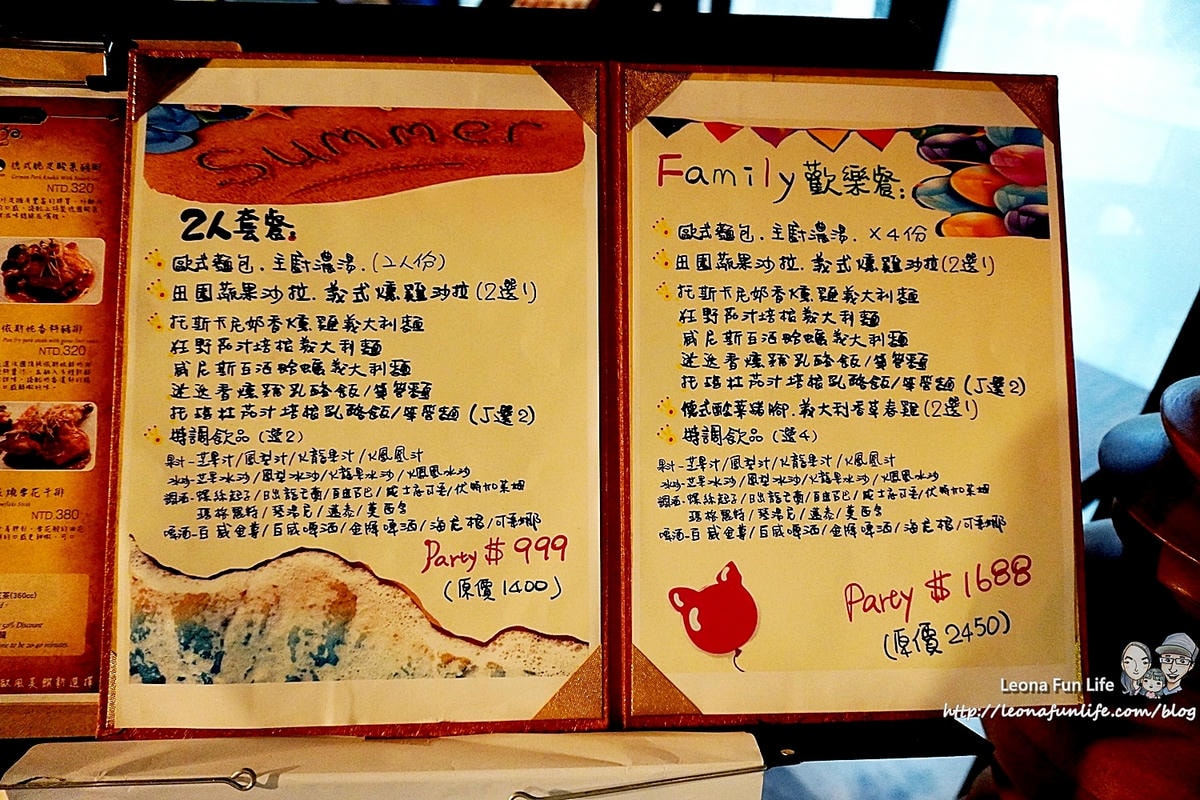 德式脆皮酸菜豬腳
German Pork Knuckle With
NTD.320
依斯妮香料豬排
NTD.320
雪花牛排
NTD 380
茶(360cc)
50% Discount
歐風美饌新選擇
Summer
2人套餐:
歐式麵包.主廚濃湯.(2人份)
田園蔬果沙拉.義式燻雞沙拉(2選1)
托斯卡尼奶香燻雞義大利麵
狂野茄汁培根義大利麵
威尼斯百酒蛤蠣義大利麵
迷迭香燻雞乳酪飯/筆管麵
托瑪杜茄汁培根乳酪飯/筆管麵(5選2)
特調飲品(選2)
果汁-芒果汁/鳳梨汁/火龍果汁/火鳳凰汁
冰沙-芒果冰沙/鳳梨冰沙/火龍果冰沙/火鳳凰冰沙
調酒-螺絲起子/日出龍舌蘭/百佳
瑪格麗特/琴湯尼/
啤酒-百威金尊/百威啤酒/金牌啤酒/海尼根/可樂娜
Party $ 999
(原價1400)
Family 歡樂餐:
歐式麵包.主廚濃湯.X4份
田園蔬果沙拉.義式燻雞沙拉(2選1)
托斯卡尼奶香燻雞義大利麵
狂野茄汁培根義大利麵
威尼斯百酒蛤蠣義大利麵
迷迭香燻雞乳酪飯/筆管麵
托瑪杜茄汁培根乳酪飯/筆管麵(5選2)
德式酸菜豬腳.義大利香草春雞(2選1)
特調飲品(選4)
果汁-芒果汁/鳳梨汁/火龍果汁/火鳳凰汁
冰沙-芒果冰沙/鳳梨冰沙/火龍果冰沙/火鳳凰冰沙
調酒-螺絲起子/日出龍舌蘭/百佳
瑪格麗特/琴湯尼/
啤酒-百威金尊/百威啤酒/金牌啤酒/海尼根/可樂娜
Party $ 1688
(原價2450)
Leona Fun Life
http://leonafunlife.com/blog